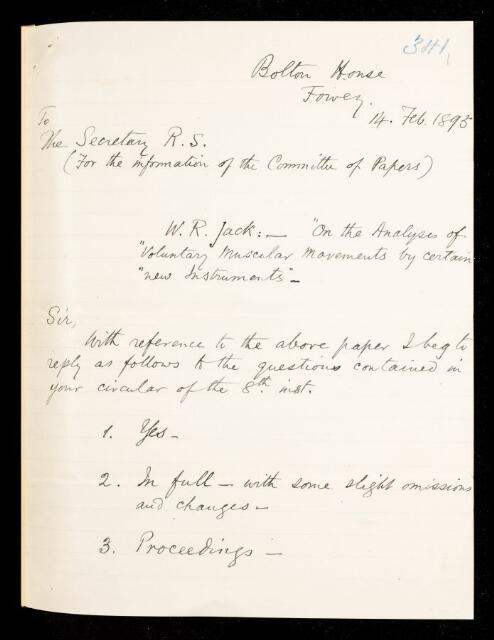 341
Bolton House
Fowey.
14. Feb. 1895
To
The Secretary R.S.
(For the information of the Committee of Papers)
W. R. Jack: — "On the Analysis of
"Voluntary Muscular Movements by certain
"new Instruments" —
Sir,
With reference to the above paper I beg to
reply as follows to the questions contained in
your circular of the 8th inst.
1. Yes —
2. In full — with some slight omissions
and changes —
3. Proceedings —